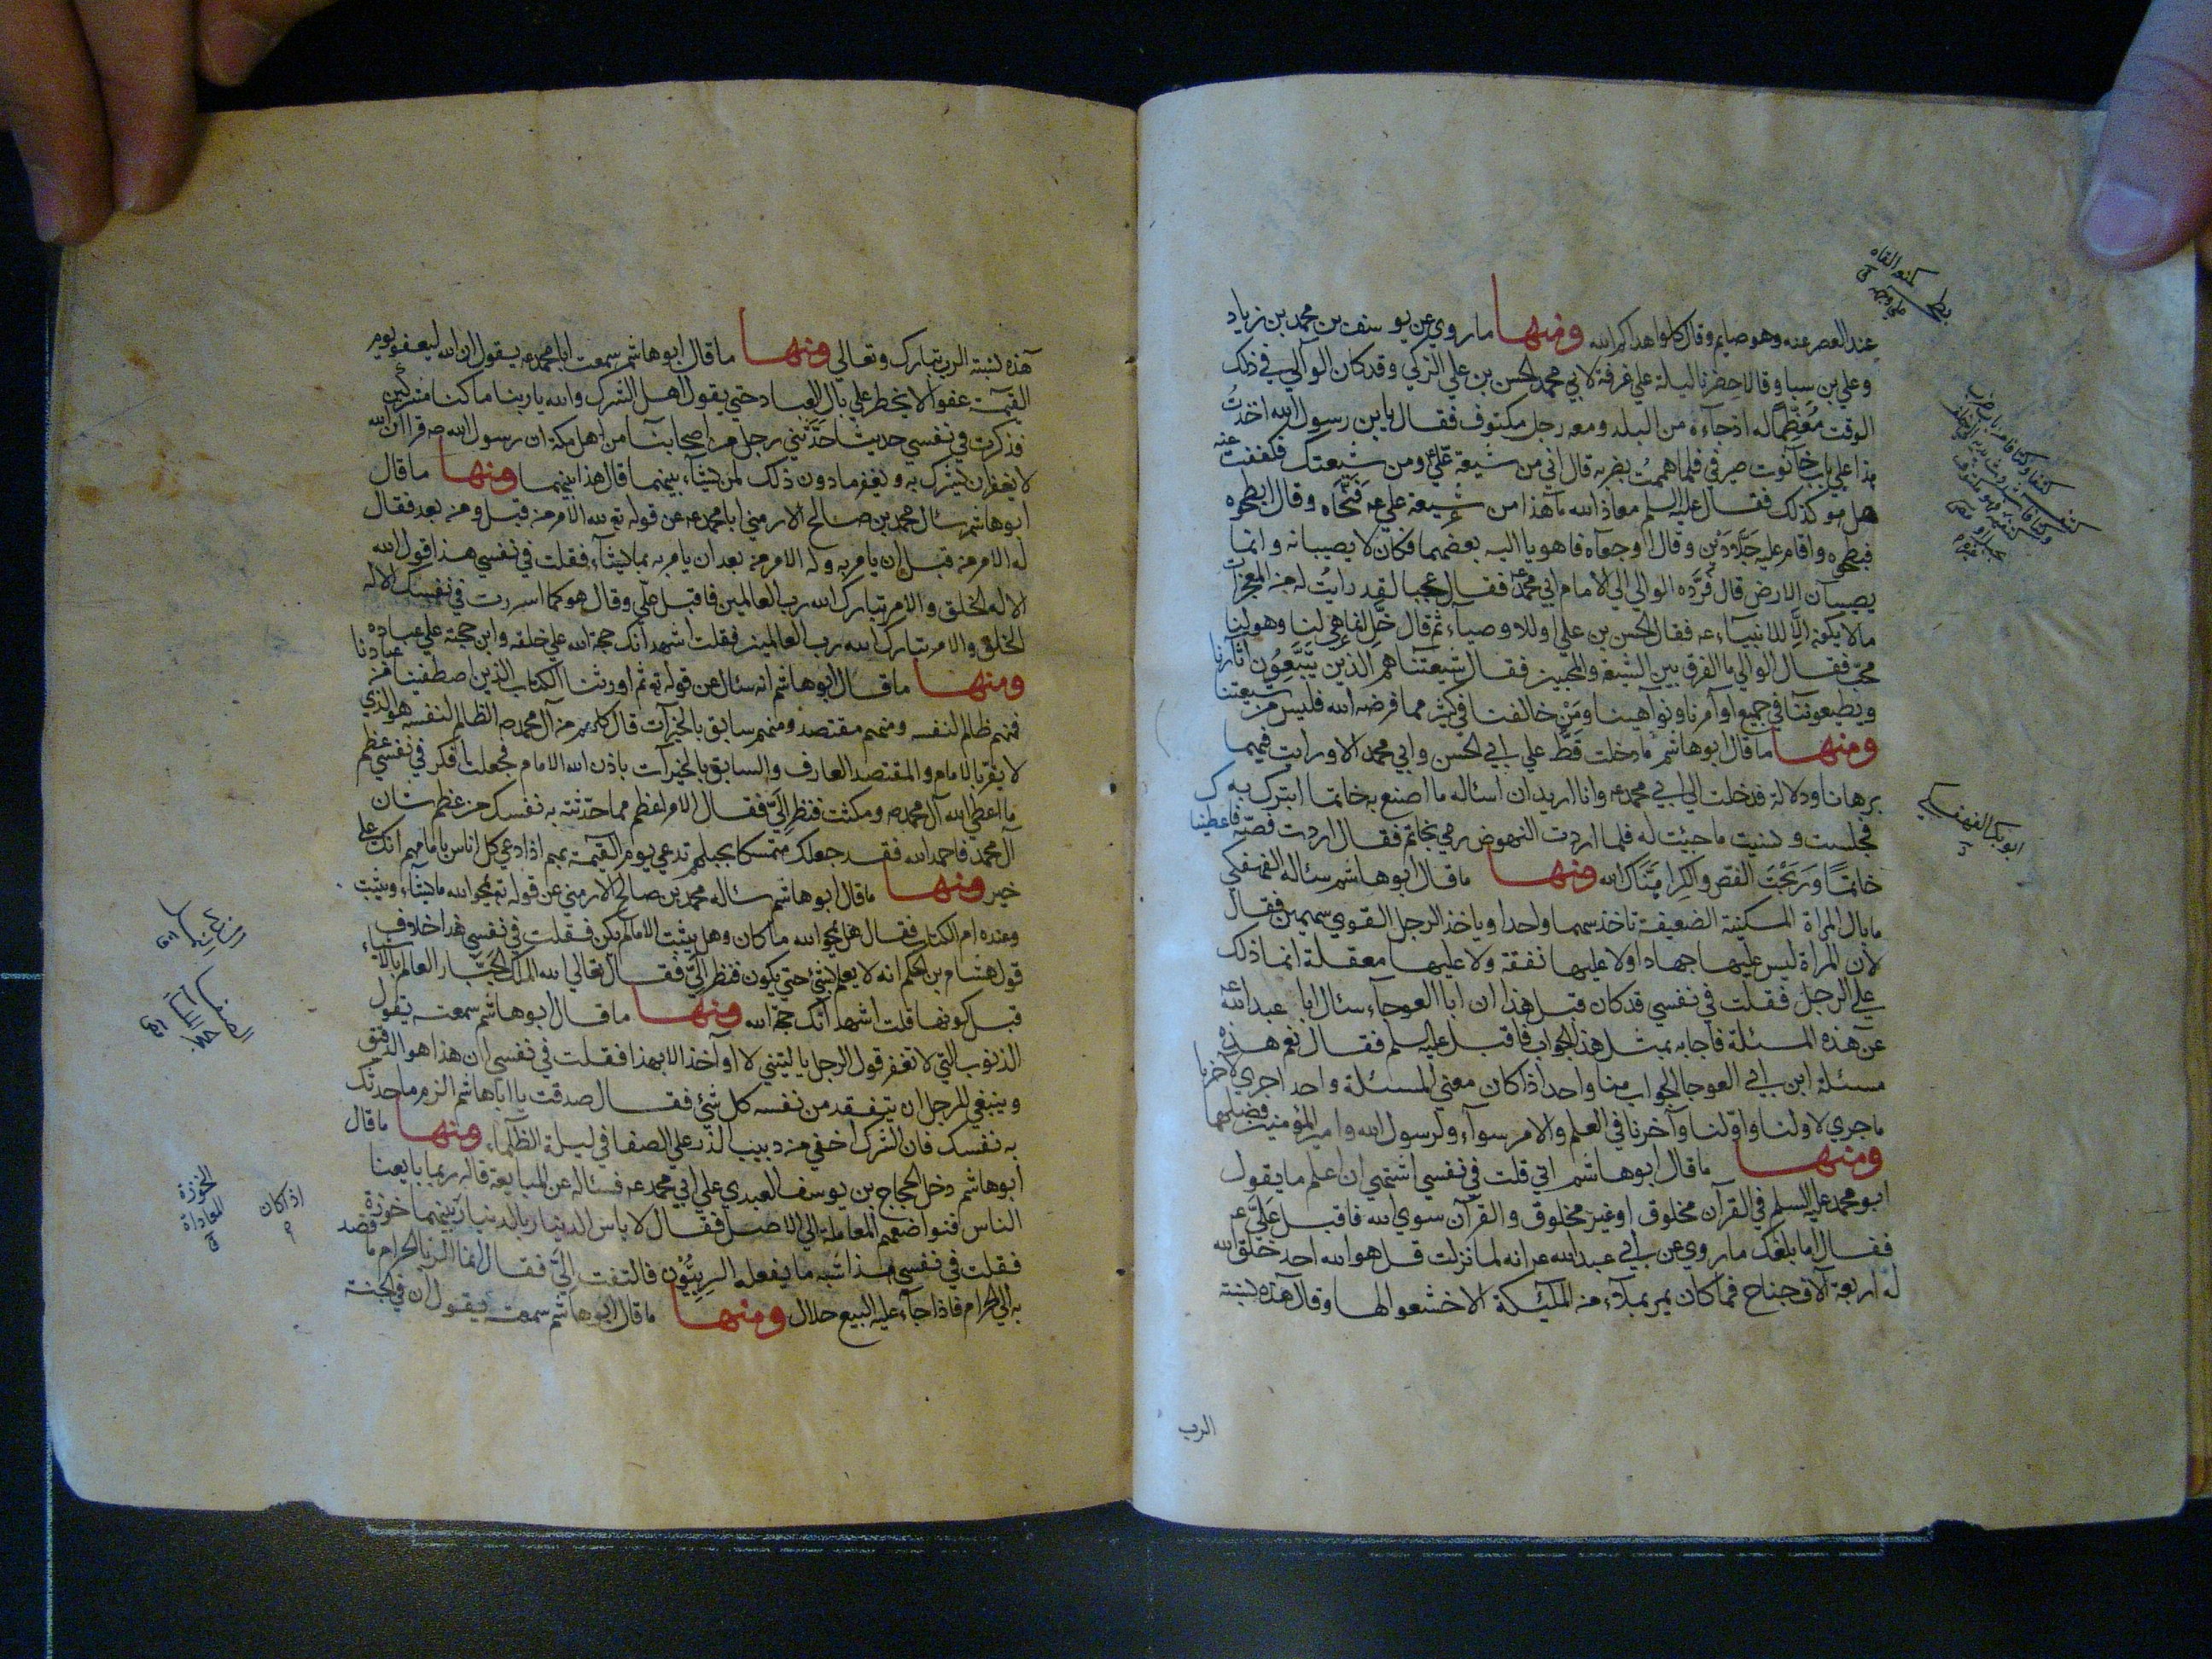 عند العصر عنه وهو صايم وقال كلوا هداكم الله ومنها ما روي عن يوسف بن محمد بن زياد
وعلي بن سيا وقالا حضرنا ليلة علي غرفة لابي محمد الحسن بن علي الزكي وقد كان الوالي في ذلك
الوقت معظما له اذ جاءه من البلد ومعه رجل مكتوف فقال يا بن رسول الله اخذت
هذا علي باب حانوت صيرفي فلما هممت بضربه قال اني من شيعة علي ومن شيعتك فكففت عنه
هل هو كذلك فقال عليه السلم معاذ الله ما هذا من شيعة علي عه فنحاه وقال ابطحوه
فبطحوه واقام عليه جلادين وقال اوجعاه فاهويا اليه بعضهما فكان لا يصيبانه وانما
يصيبان الارض قال فرده الوالي الي الامام ابي محمد عه فقال عجبا لقد رايت له من المعجزات
ما لا يكون الا للانبياء عه فقال الحسن بن علي او للاوصياء ثم قال خل انما هي لنا وهو لنا
محب فقال الوالي ما الفرق بين الشيعة والمحبين فقال شيعتنا هم الذين يتبعون اثارنا
ويطيعوننا في جميع اوامرنا ونواهينا ومن خالفنا في كثير مما فرضه الله فليس من شيعتنا
ومنها ما قال ابو هاشم ما دخلت قط علي ابي الحسن وابي محمد الا ورايت فيهما
برهانا ودلالة فدخلت الي ابي محمد عه وانا اريد ان اساله ما اصنع به خاتما اتبرك به
فجلست ونسيت ما جئت له فلما اردت النهوض رمي بخاتم فقال اردت فضة فاعطينا
خاتما وربحت الفص والكرا هناك الله ومنها ما قال ابو هاشم ساله الفهفكي
ما بال المراة المسكينة الضعيفة تاخذ سهما واحدا وياخذ الرجل القوي سهمين فقال
لان المراة ليس عليها جهاد ولا عليها نفقة ولا عليها معقلة انما ذلك
علي الرجل فقلت في نفسي قد كان قبل هذا ان ابا العوجاء سال ابا عبد الله عه
عن هذه المسئلة فاجابه بمثل هذا الجواب فاقبل عليه السلم فقال نعم هذه
مسئلة ابن ابي العوجا الجواب منا واحد اذا كان معني المسئلة واحد اجري لاخرنا
ما جري لاولنا واولنا وآخرنا في العلم والامر سواء ولرسول الله وامير المؤمنين فضلهما
ومنها ما قال ابو هاشم اني قلت في نفسي اشتهي ان اعلم ما يقول
ابو محمد عليه السلم في القرآن مخلوق او غير مخلوق والقرآن سوي الله فاقبل علي عه
فقال اما بلغك ما روي عن ابي عبد الله عه انه لما نزلت قل هو الله احد خلق الله
له اربعة آلاف جناح فما كان يمر بملاء من الملئكة الا خشعوا لها وقال هذه نسبة
الرب
ابو بكر الفهفكي
هذه نسبة الرب تبارك وتعالي ومنها ما قال ابو هاشم سمعت ابا محمد عه يقول ان الله ليعفو يوم
القيمة عفوا لا يخطر علي بال العباد حتي يقول اهل الشرك والله يا ربنا ما كنا مشركين
فذكرت في نفسي حديثا حدثني رجل من اصحابنا من اهل مكة ان رسول الله ص قرا ان الله
لا يغفر ان يشرك به ويغفر ما دون ذلك لمن يشاء بينما قال هذا بينما ومنها ما قال
ابو هاشم سئال محمد بن صالح الارمني ابا محمد عه عن قوله تع لله الامر من قبل ومن بعد فقال
له الامر من قبل ان يامر به وله الامر من بعد ان يامر به بما يشاء فقلت في نفسي هذا قول الله
الا له الخلق والامر تبارك الله رب العالمين فاقبل علي وقال هو كما اسررت في نفسك الا له
الخلق والامر تبارك الله رب العالمين فقلت اشهد انك حجة الله علي خلقه وابن حجته علي عباده
ومنها ما قال ابو هاشم انه سئال عن قوله تع ثم اورثنا الكتاب الذين اصطفينا من عبادنا
فمنهم ظالم لنفسه ومنهم مقتصد ومنهم سابق بالخيرات قال كلهم من آل محمد ص الظالم لنفسه هو الذي
لا يقر بالامام والمقتصد العارف والسابق بالخيرات باذن الله الامام فجعلت افكر في نفسي عظم
ما اعطي الله آل محمد ص ومكثت فنظر الي فقال الامر اعظم مما حدثته به نفسك من عظم شان
آل محمد فاحمد الله فقد جعلك متمسكا بحبلهم تدعي يوم القيمة بهم اذا دعي كل اناس بامامهم انك علي
خير ومنها ما قال ابو هاشم ساله محمد بن صالح الارمني عن قوله تع يمحو الله ما يشاء ويثبت
وعنده ام الكتاب فقال هل يمحو الله ما كان وهل يثبت الا ما لم يكن فقلت في نفسي هذا خلاف
قول هشام بن الحكم انه لا يعلم بشئ حتي يكون فنظر الي فقال تعالي الله الملك الجبار العالم بالاشياء
قبل كونها قلت اشهد انك حجة الله ومنها ما قال ابو هاشم سمعته يقول
الذنوب التي لا تغفر قول الرجل يا ليتني لا اواخذ الا بهذا فقلت في نفسي ان هذا هو الدقيق
وينبغي للرجل ان يتفقد من نفسه كل شئ فقال صدقت يا ابا هاشم الزم ما حدثتك
به نفسك فان الشرك اخفي من دبيب الذر علي الصفا في ليلة الظلماء ومنها ما قال
ابو هاشم دخل الحجاج بن يوسف العبدي علي ابي محمد عه فساله عن المبايعة قال ربما بايعنا
الناس فنواضعهم المعاملة الي الاصل فقال لا باس الدينار بالدينارين بينهما خرزة
فقلت في نفسي هذا شبه ما يفعله الربيون فالتفت الي فقال انما الربا الحرام ما قصد
به الي الحرام فاذا جاء عليه البيع حلال ومنها ما قال ابو هاشم سمعته يقول ان في الجنة
اذ كان